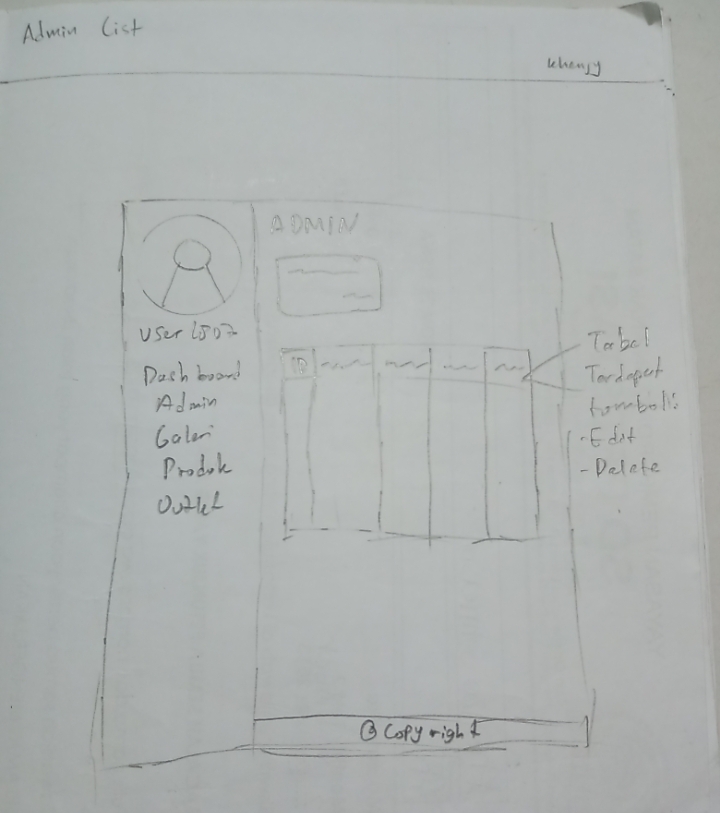 Admin List
khenjy
ADMIN
User 1507
Dashboard
Admin
Galeri
Produk
Outlet
ID
Tabel
Terdapat
tombol:
- Edit
- Delete
© Copyright